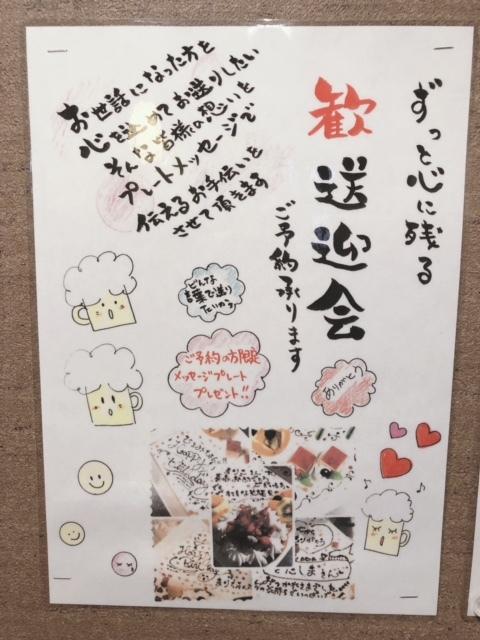 ずっと心に残る
歓送迎会
ご予約承ります
お世話になった方と
心を込めてお送りしたい
そんな皆様の想いを
プレートメッセージで
伝えるお手伝いを
させて頂きます
どんな
言葉で送り
たいかな
ご予約の方限定
メッセージプレート
プレゼント!!
ありがとう